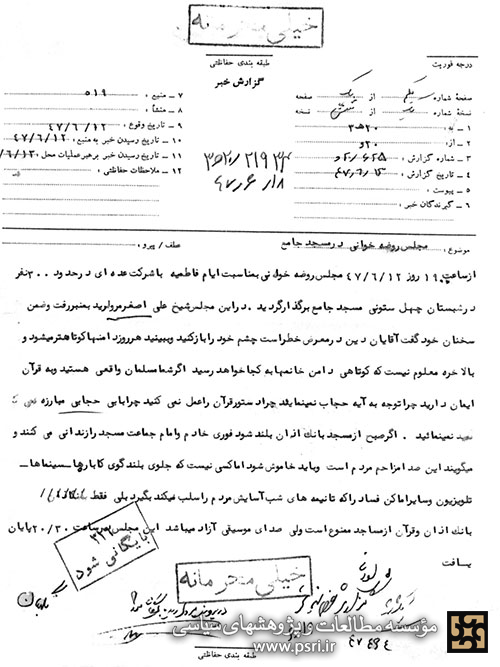 خیلی محرمانه
طبقه بندی حفاظتی
درجه فوریت
گزارش خبر
صفحه شماره یکم از یک صفحه
نسخه شماره از شش نسخه
۱ ـ به : ۳۲۰
۲ ـ از : ۲۰ و
۳ ـ شماره گزارش :
۴ ـ تاریخ گزارش :
۵ ـ پیوست :
۶ ـ گیرندگان خبر :
۷ ـ منبع : ۵۱۹
۸ ـ منشأ :
۹ ـ تاریخ وقوع : ۴۷/۶/۱۲
۱۰ ـ تاریخ رسیدن خبر به منبع : ۴۷/۶/۱۲
۱۱ ـ تاریخ رسیدن خبر به رهبر عملیات محل : ۴۷/۶/۱۳
۱۲ ـ ملاحظات حفاظتی :
موضوع : مجلس روضه خوانی در مسجد جامع
عطف / پیرو :
از ساعت ۱۹ روز ۴۷/۶/۱۲ مجلس روضه خوانی بمناسبت ایام فاطمیه با شرکت عده ای در حدود ۳۰۰ نفر
در شبستان چهل ستونی مسجد جامع برگذار گردید . در این مجلس شیخ علی اصغر مروارید بمنبر رفت وضمن
سخنان خود گفت آقایان دین در معرض خطر است چشم خود را باز کنید و ببینید هر روز دامنها کوتاهتر میشود و
بالاخره معلوم نیست که کوتاهی دامن خانمها به کجا خواهد رسید اگر شما مسلمان واقعی هستید وبه قرآن
ایمان دارید چرا توجه به آیه حجاب نمینمائید چرا دستور قرآن را عمل نمی کنید چرا با بی حجابی مبارزه نمی
نمائید . اگر صبح از مسجد بانگ اذان بلند شود فوری خادم وامام جماعت مسجد را زندانی می کنند و
میگویند این صدا مزاحم مردم است وباید خاموش شود اما کسی نیست که جلوی بلندگوی کاباره ها ـ سینماها ـ
تلویزیون وسایر اماکن فساد را که تا نیمه های شب آسایش مردم را سلب میکند بگیرد بلی فقط
بانگ اذان وقرآن از مساجد ممنوع است ولی صدای موسیقی آزاد میباشد این مجلس در ساعت ۲۰/۳۰ پایان
یافت
۳۲۲
بایگانی شود
خیلی محرمانه
مؤسسه مطالعات و پژوهشهای سیاسی
www.psri.ir
طبقه بندی حفاظتی